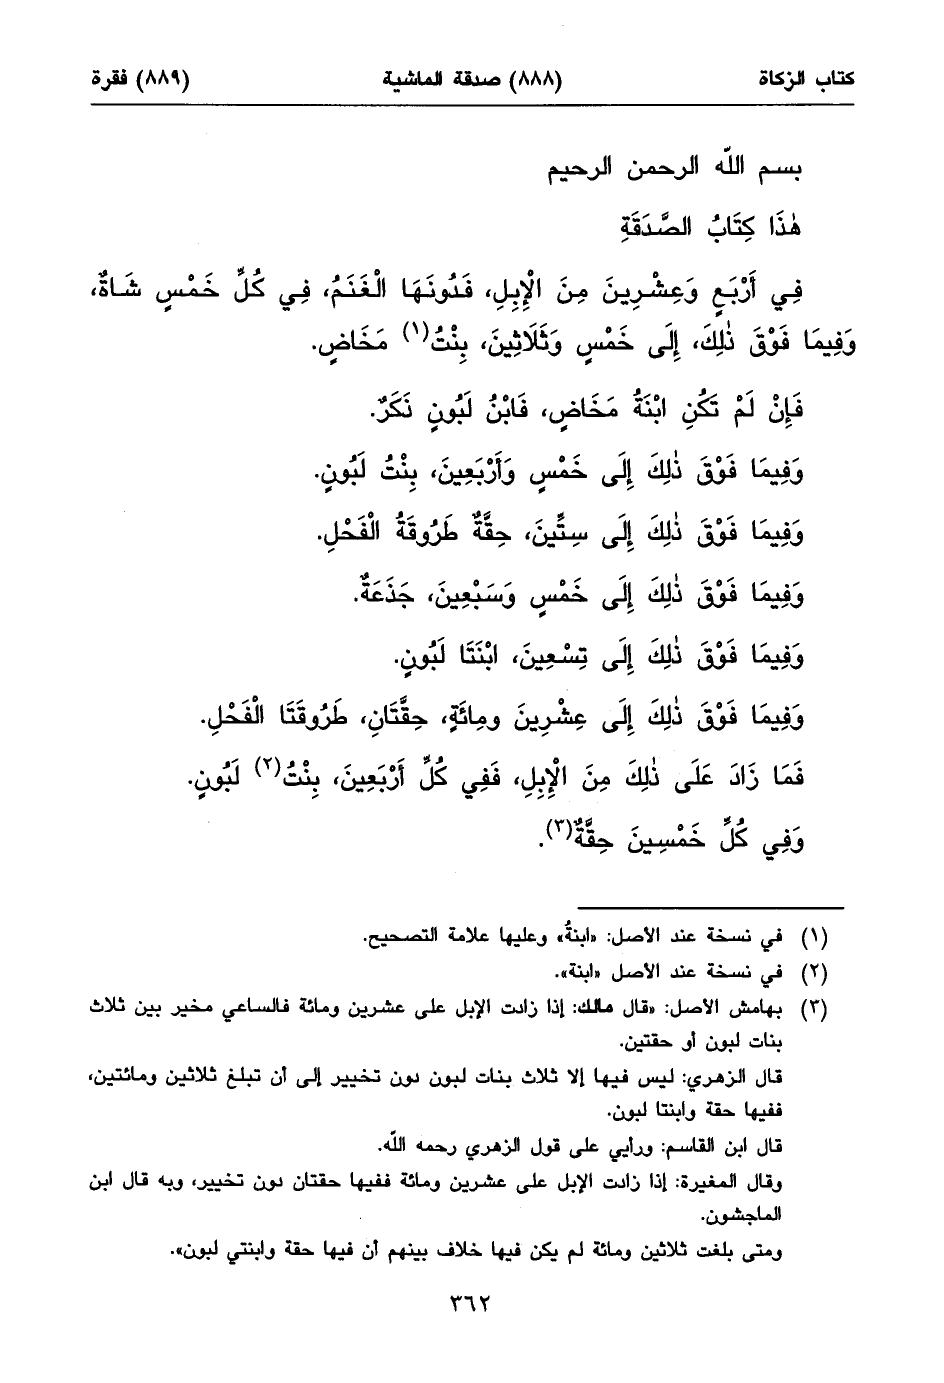 كتاب الزكاة (٨٨٨) صدقة الماشية (٨٨٩) فقرة
بسم اللّه الرحمن الرحيم
هٰذَا كِتَابُ الصَّدَقَةِ
فِي أَرْبَعٍ وَعِشْرِينَ مِنَ الْإِبِلِ، فَدُونَهَا الْغَنَمُ، فِي كُلِّ خَمْسٍ شَاةٌ،
وَفِيمَا فَوْقَ ذٰلِكَ، إِلَى خَمْسٍ وَثَلَاثِينَ، بِنْتُ(١) مَخَاضٍ.
فَإِنْ لَمْ تَكُنِ ابْنَةُ مَخَاضٍ، فَابْنُ لَبُونٍ ذَكَرٌ.
وَفِيمَا فَوْقَ ذٰلِكَ إِلَى خَمْسٍ وَأَرْبَعِينَ، بِنْتُ لَبُونٍ.
وَفِيمَا فَوْقَ ذٰلِكَ إِلَى سِتِّينَ، حِقَّةٌ طَرُوقَةُ الْفَحْلِ.
وَفِيمَا فَوْقَ ذٰلِكَ إِلَى خَمْسٍ وَسَبْعِينَ، جَذَعَةٌ.
وَفِيمَا فَوْقَ ذٰلِكَ إِلَى تِسْعِينَ، ابْنَتَا لَبُونٍ.
وَفِيمَا فَوْقَ ذٰلِكَ إِلَى عِشْرِينَ ومِائَةٍ، حِقَّتَانِ، طَرُوقَتَا الْفَحْلِ.
فَمَا زَادَ عَلَى ذٰلِكَ مِنَ الْإِبِلِ، فَفِي كُلِّ أَرْبَعِينَ، بِنْتُ(٢) لَبُونٍ.
وَفِي كُلِّ خَمْسِينَ حِقَّةٌ(٣).
(١) في نسخة عند الأصل: «ابنةُ» وعليها علامة التصحيح.
(٢) في نسخة عند الأصل «ابنة».
(٣) بهامش الأصل: «قال مالك: إذا زادت الإبل على عشرين ومائة فالساعي مخير بين ثلاث
بنات لبون أو حقتين.
قال الزهري: ليس فيها إلا ثلاث بنات لبون دون تخيير إلى أن تبلغ ثلاثين ومائتين،
ففيها حقة وابنتا لبون.
قال ابن القاسم: ورأيي على قول الزهري رحمه اللّه.
وقال المغيرة: إذا زادت الإبل على عشرين ومائة ففيها حقتان دون تخيير، وبه قال ابن
الماجشون.
ومتى بلغت ثلاثين ومائة لم يكن فيها خلاف بينهم أن فيها حقة وابنتي لبون».
٣٦٢